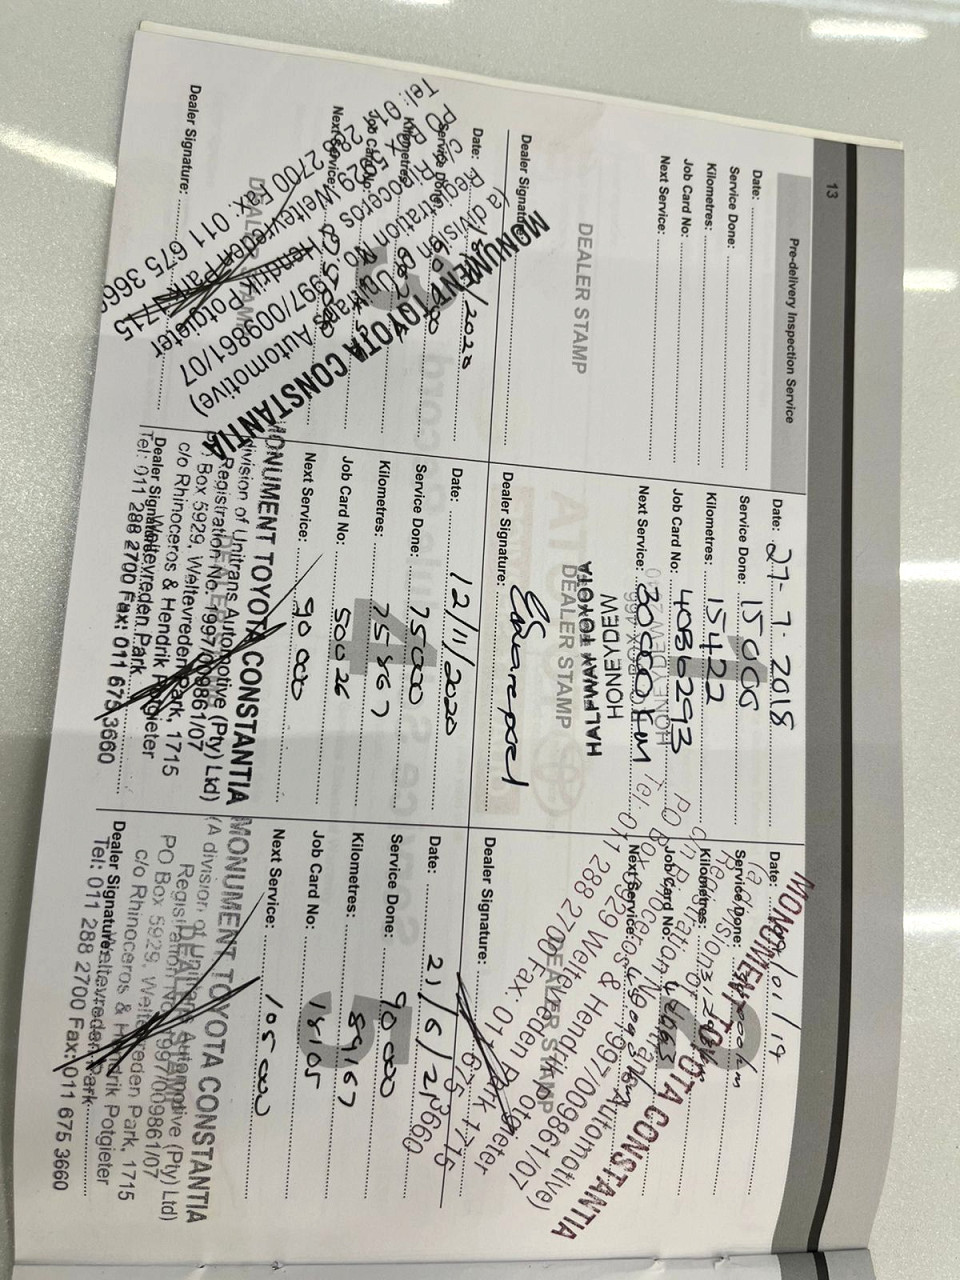 13
Pre-delivery Inspection Service
Date:
Service Done:
Kilometres:
Job Card No:
Next Service:
DEALER STAMP
Dealer Signature:
1
Date: 27-7-2018
Service Done: 15000
Kilometres: 15422
Job Card No: 40B6293
Next Service: 30000km
DEALER STAMP
HALFWAY TOYOTA
HONEYDEW
Dealer Signature:
2
Date: /01/19
Service Done:
Kilometres:
Job Card No:
Next Service:
DEALER STAMP
MONUMENT TOYOTA CONSTANTIA
(a division of Unitrans Automotive)
Registration No 1997/009861/07
c/o Rhinoceros & Hendrik Potgieter
PO Box 5929 Weltevreden Park 1715
Tel: 011 288 2700 Fax: 011 675 3660
Dealer Signature:
3
Date: /2020
Service Done:
Kilometres:
Job Card No:
Next Service:
DEALER STAMP
MONUMENT TOYOTA CONSTANTIA
(a division of Unitrans Automotive)
Registration No 1997/009861/07
c/o Rinoceros & Hendrik Potgieter
P O Box 5929 Weltevreden Park 1715
Tel: 011 288 2700 Fax: 011 675 3660
Dealer Signature:
4
Date: 12/11/2020
Service Done: 75000
Kilometres: 75867
Job Card No: 50026
Next Service: 90000
MONUMENT TOYOTA CONSTANTIA
division of Unitrans Automotive (Pty) Ltd)
Registration No. 1997/009861/07
Box 5929, Weltevreden Park, 1715
c/o Rhinoceros & Hendrik Potgieter
Weltevreden Park
Dealer Signature:
Tel: 011 288 2700 Fax: 011 675 3660
5
Date: 21/6/21
Service Done: 90000
Kilometres: 89167
Job Card No: 18105
Next Service: 105000
MONUMENT TOYOTA CONSTANTIA
(A division of Unitrans Automotive (Pty) Ltd)
Registration No. 1997/009861/07
PO Box 5929, Weltevreden Park, 1715
c/o Rhinoceros & Hendrik Potgieter
Weltevreden Park
Dealer Signature:
Tel: 011 288 2700 Fax: 011 675 3660